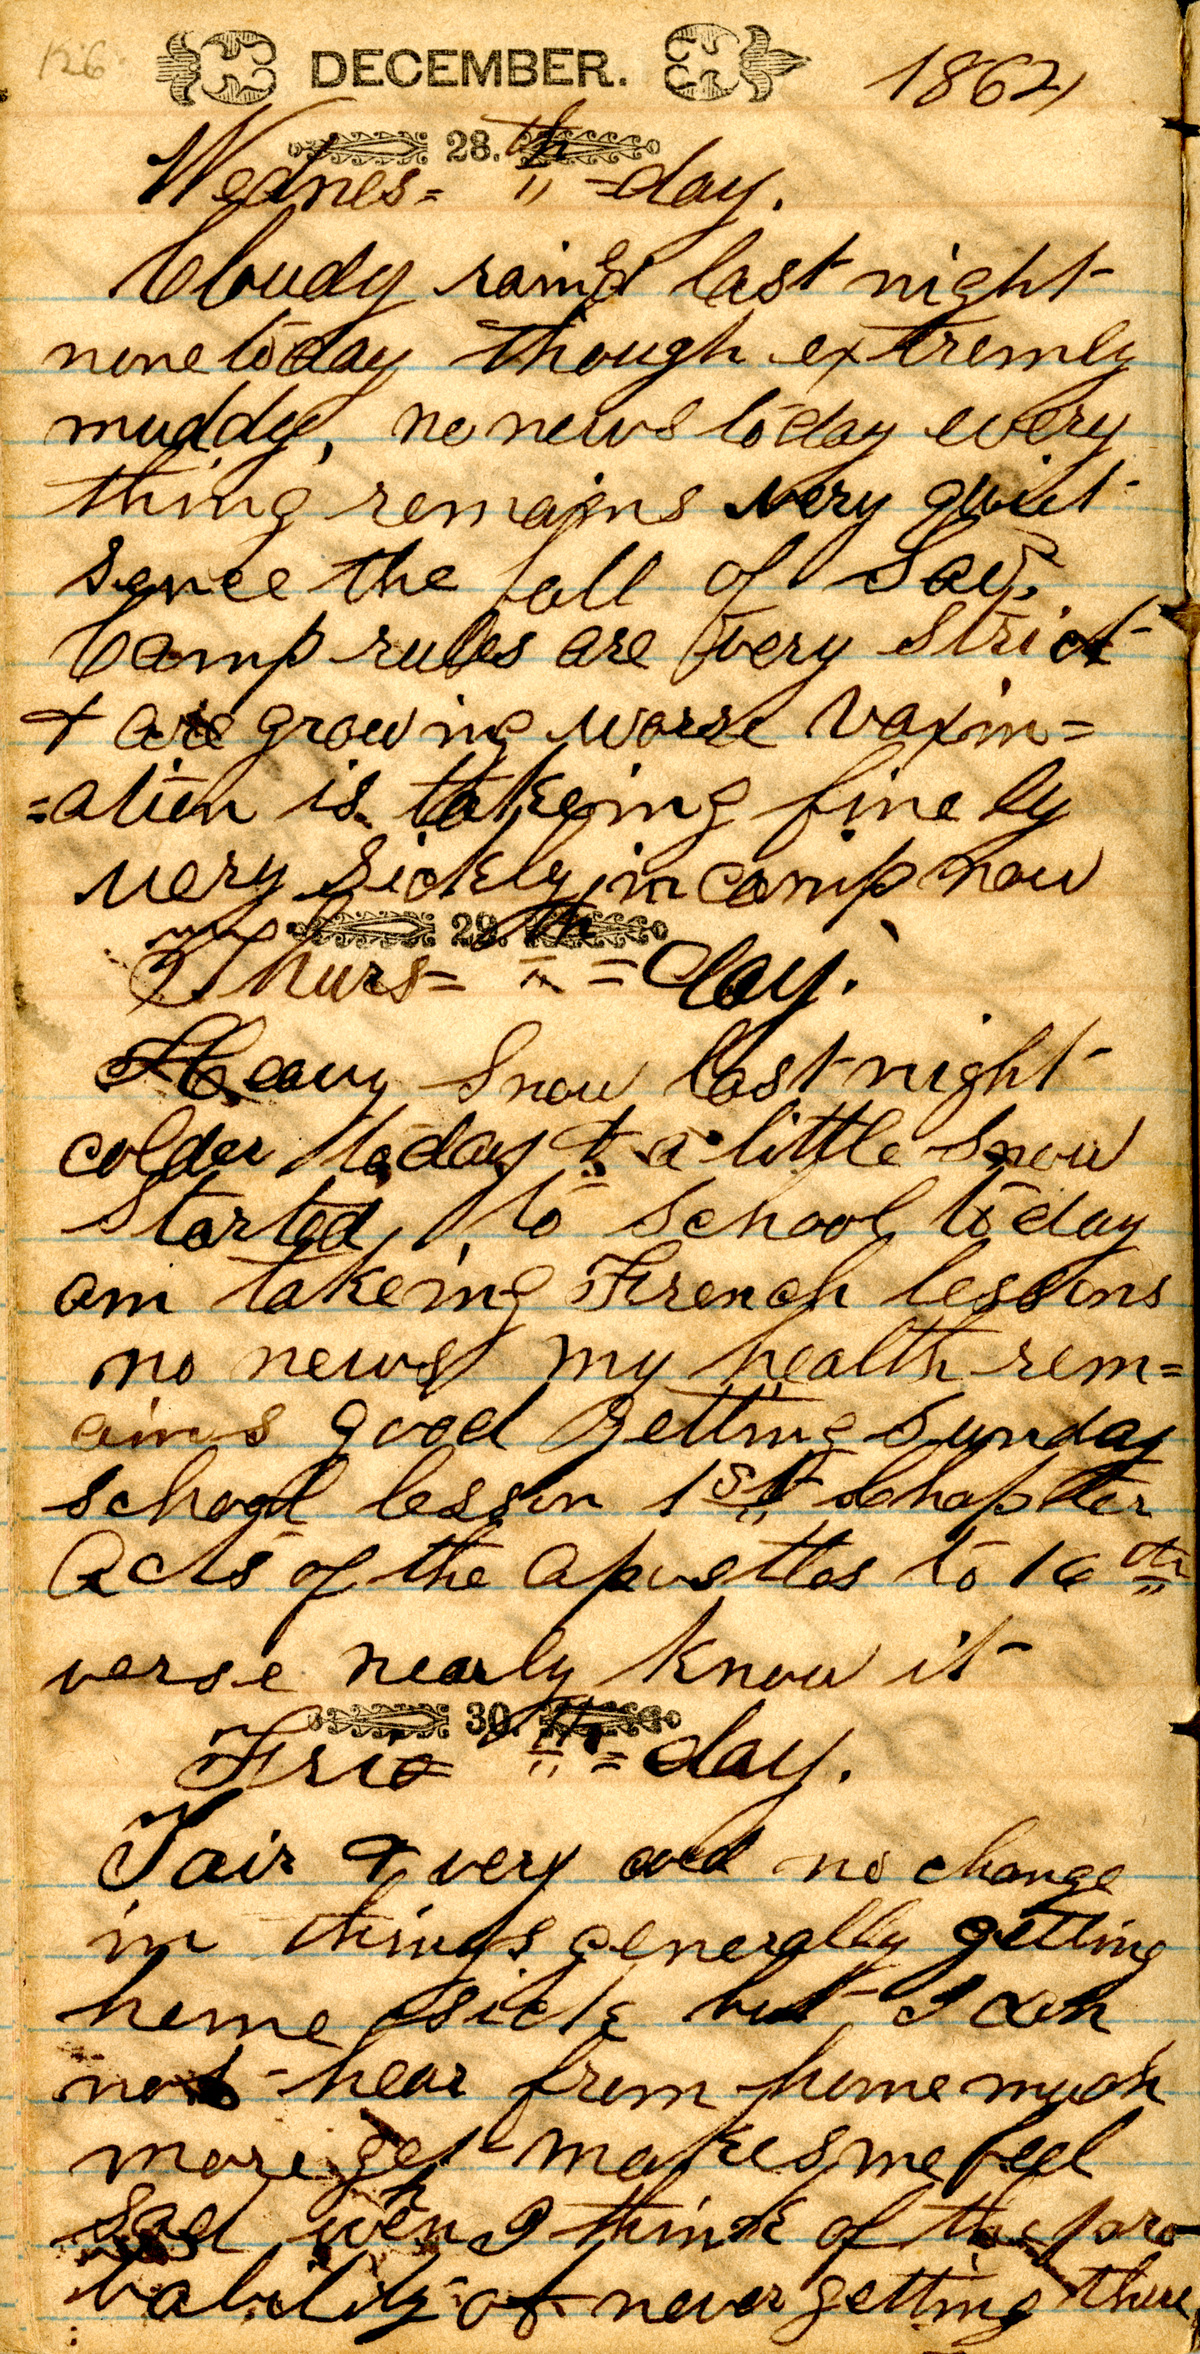 126
DECEMBER. 1864
28.th
Wednes= " =day.
Cloudy rained last night
none today though extremly
muddy, no news today every
thing remains very quiet
sence the fall of Sav.
Camp rules are very strict
& are growing worse Vaxin=
=ation is takeing finely
very sickly in camp now
29.th
Thurs= " =day.
Heavy Snow last night
colder today & a little snow
Started to school today
am takeing French lessons
no news my health rem=
ains good getting sunday
school lesson 1st chapter
Acts of the apostles to 16th
verse nearly know it
30.th
Fri= " =day.
Fair & very cold no change
in things generally getting
home sick but I can
not hear from home much
more get makes me feel
sad when I think of the pro
bability of never getting there